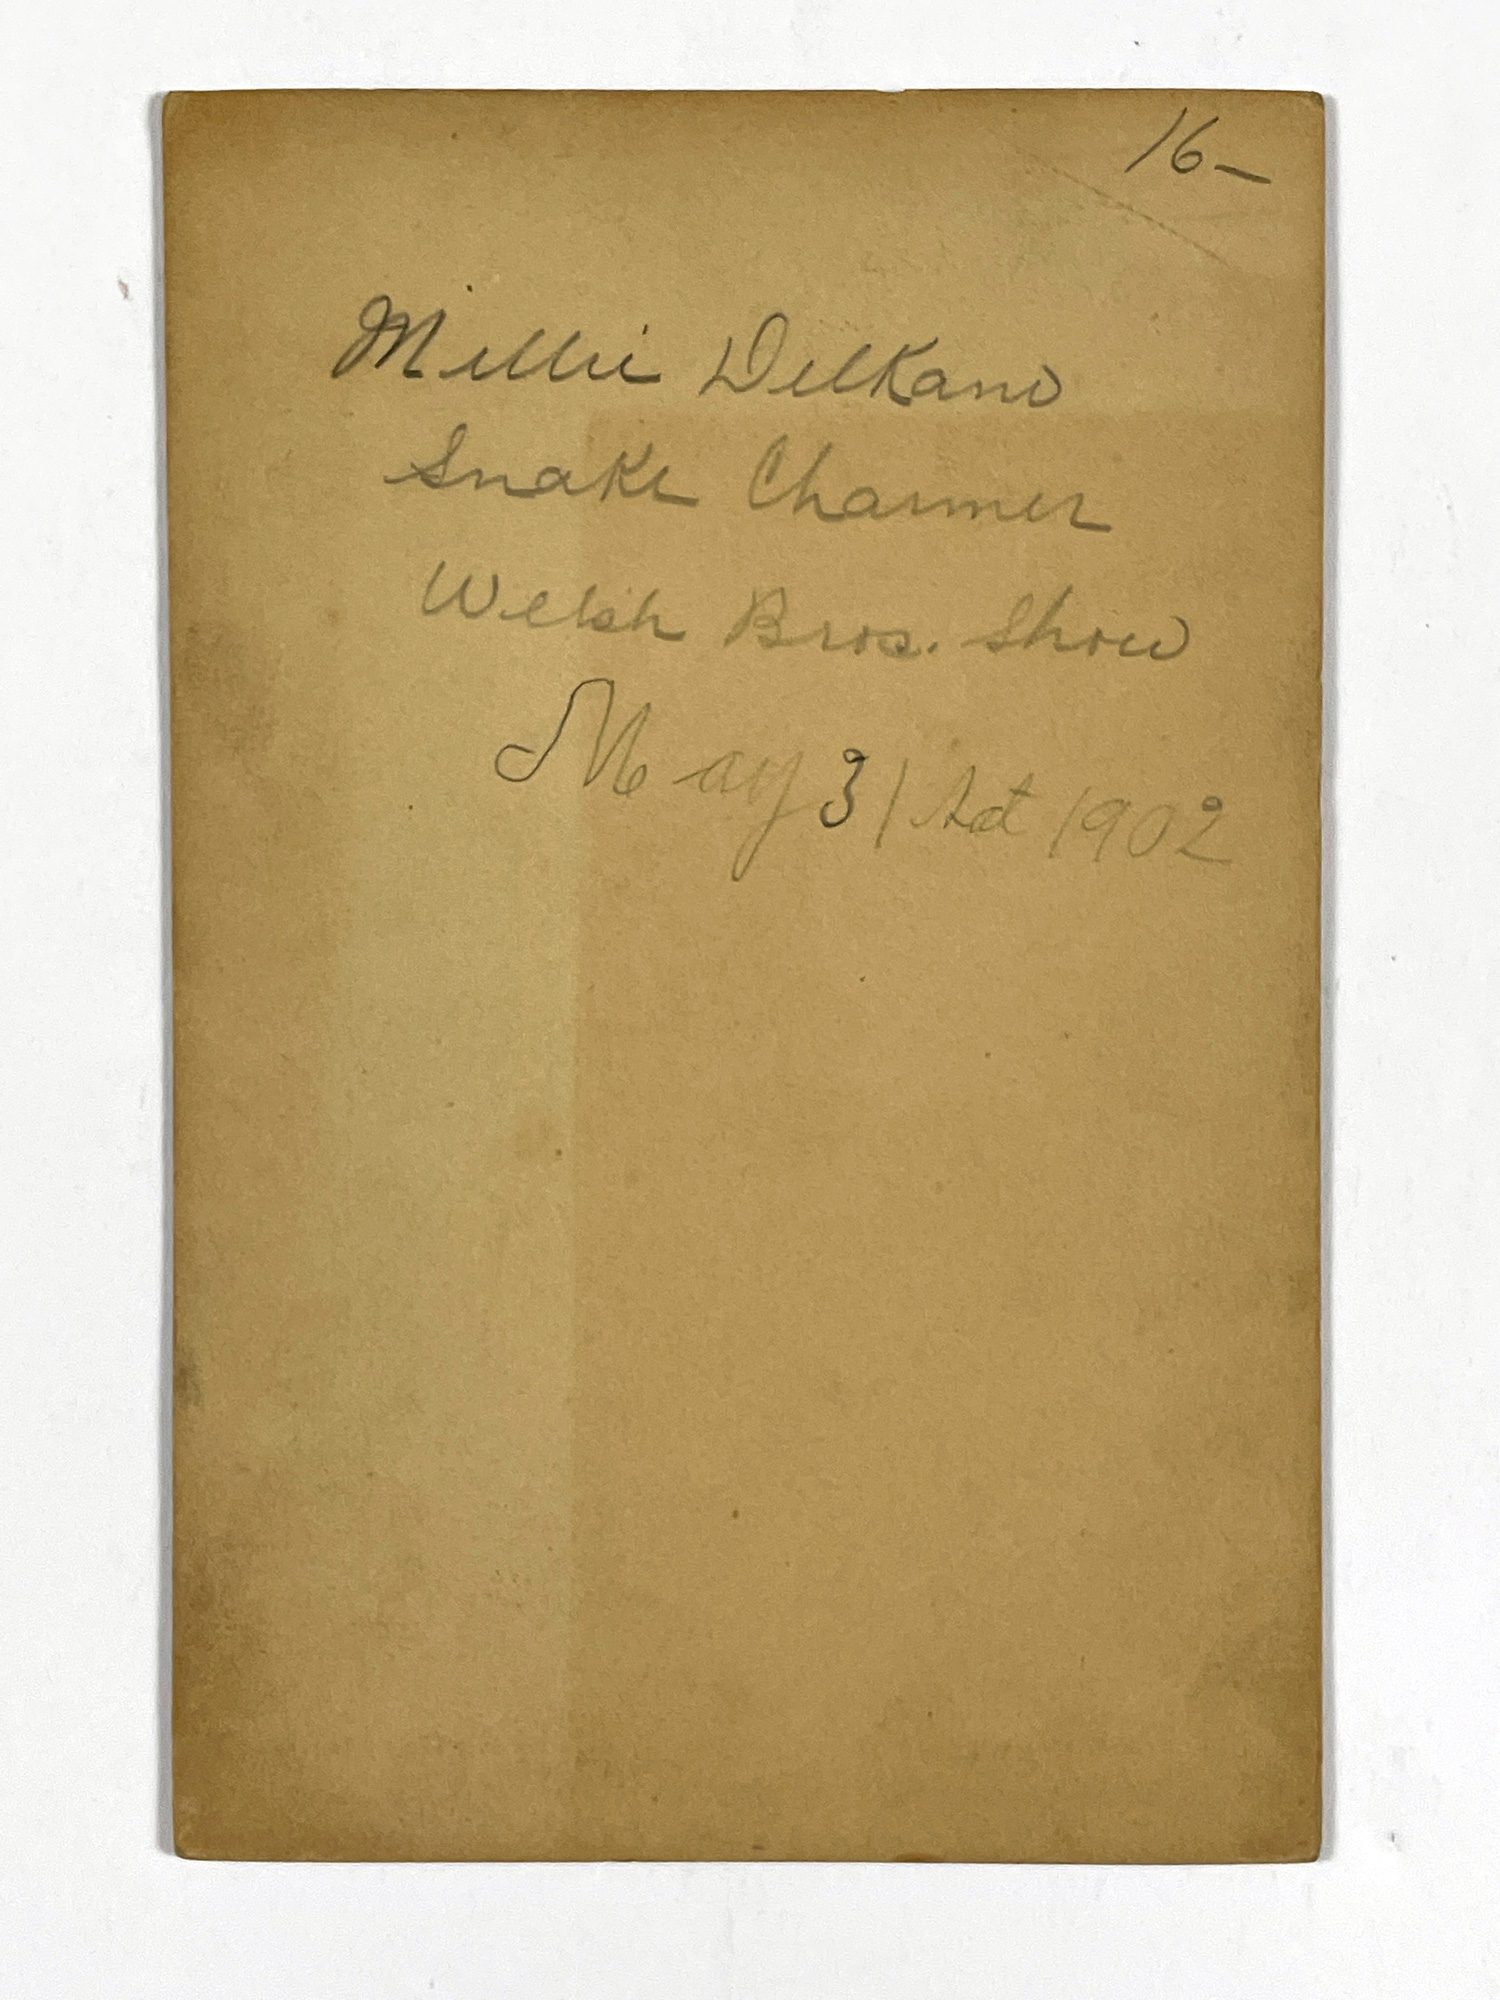 16-
Millie DelKano
Snake Charmer
Welsh Bros. Show
May 31 1902